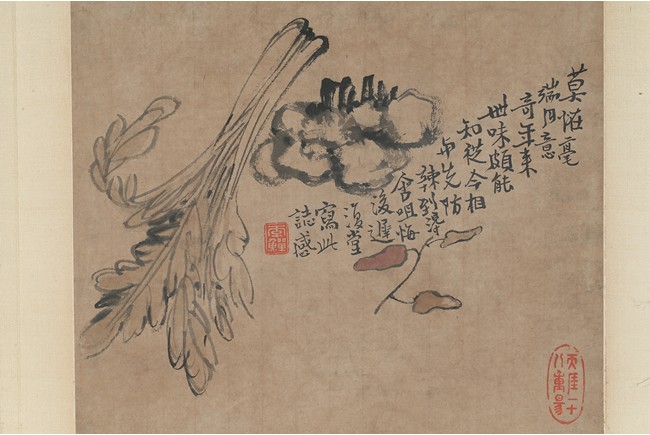 莫恠毫
端用意
奇年来
世味頗能
知從今相
先防
辣到
含咀悔
後遲
復堂
寫此
誌感